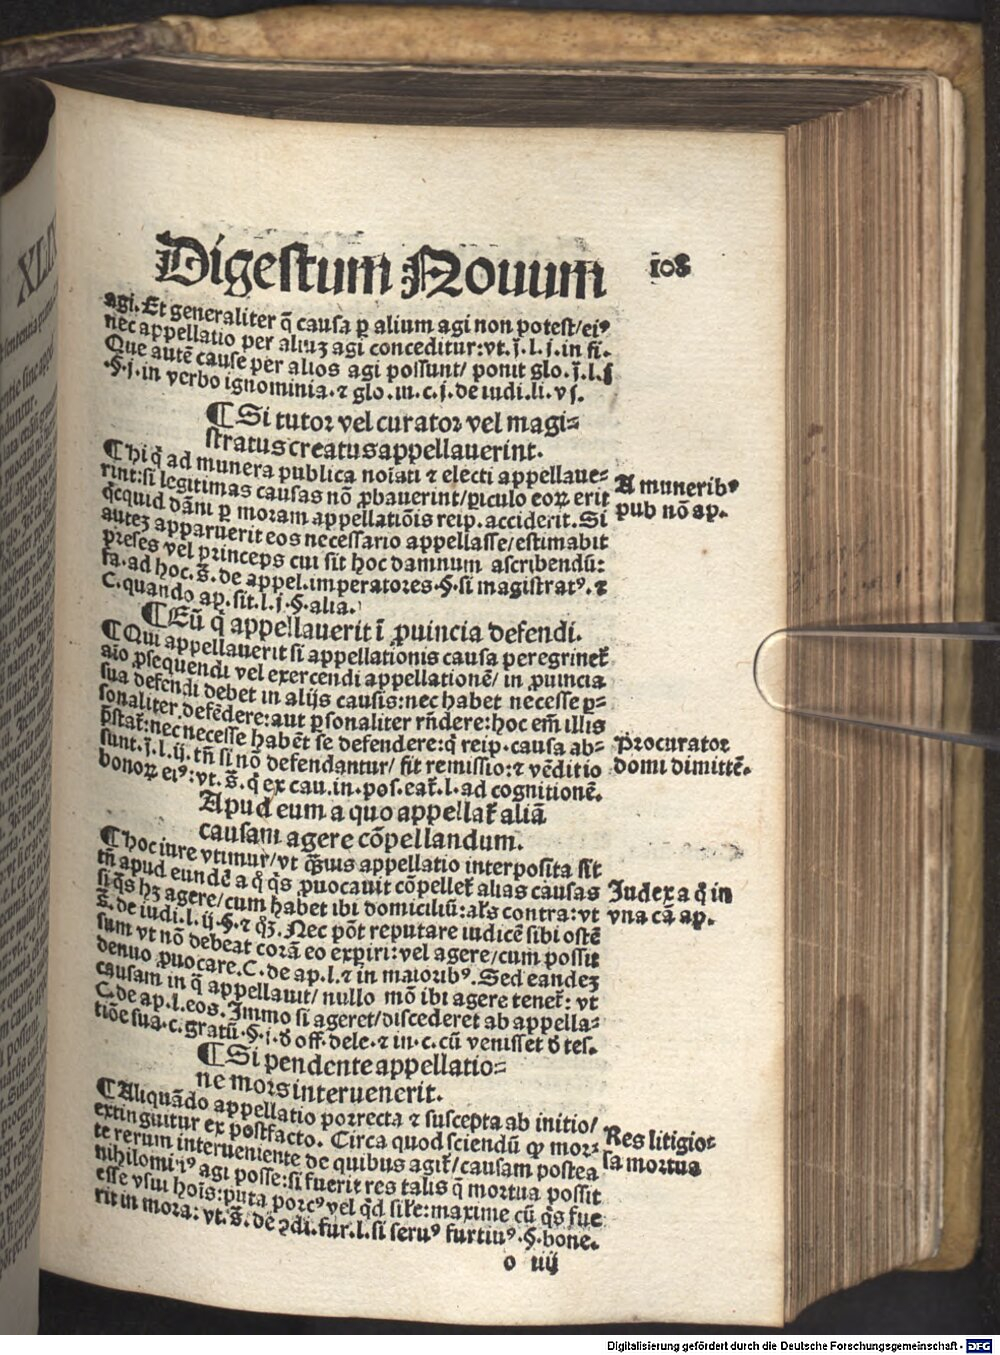 Digestum Nouum 108
agi. Et generaliter q̃ causa p̱ alium agi non potest/ eiꝰ
nec appellatio per aliuʒ agi conceditur: vt. j̃. l. j. in fi.
Que autẽ cause per alios agi possunt/ ponit glo. j̃. l. j
.§. j. in verbo ignominia. ⁊ glo. in. c. j. de iudi. li. vj.
¶ Si tutor vel curator vel magi⸗
stratus creatus appellauerint.
¶ Hi q̇ ad munera publica noĩati ⁊ electi appellaue⸗
rint: si legitimas causas nõ ꝓbauerint/ ꝑiculo eoꝝ erit
q̇cquid dãni ꝑ moram appellatiõis reip. acciderit. Si
auteʒ apparuerit eos necessario appellasse/ estimabit
preses vel princeps cui sit hoc damnum ascribendũ:
fa. ad hoc. s̃. de appel. imperatores. §. si magistratꝰ. ⁊
C. quando ap. sit. l. j. §. alia.
A muneribꝰ
pub nõ ap.
¶ Eũ q̇ appellauerit ĩ ꝓuincia defendi.
¶ Qui appellauerit si appellationis causa peregrinet̃
aĩo ꝓsequendi vel exercendi appellationẽ/ in ꝓuincia
sua defendi debet in alijs causis: nec habet necesse ꝑ⸗
sonaliter defẽdere: aut ꝑsonaliter rñdere: hoc em̃ illis
p̃stat̃: nec necesse habẽt se defendere: q̇ reip. causa ab⸗
sunt. j̃. l. ij. tñ si nõ defendantur/ fit remissio: ⁊ vẽditio
bonoꝝ eiꝰ: vt. s̃. q̇ ex cau. in. pos. eat̃. l. ad cognitionẽ.
Procurator
domi dimittẽ.
Apud eum a quo appellat̃ aliã
causam agere cõpellandum.
¶ Hoc iure vtimur/ vt q̃uis appellatio interposita sit
tñ apud eundẽ a q̊ q̇s ꝓuocauit cõpellet̃ alias causas
si q̃s hʒ agere/ cum habet ibi domiciliũ: al̃s contra: vt
s̃. de iudi. l. ij. §. ⁊ q̃ʒ. Nec põt reputare iudicẽ sibi ostẽ
sum vt nõ debeat corã eo exꝑiri: vel agere/ cum possit
denuo ꝓuocare. C. de ap. l. ⁊ in maioribꝰ. Sed eandeʒ
causam in q̃ appellauit/ nullo mõ ibi agere tenet̃: vt
C. de ap. l. eos. Immo si ageret/ discederet ab appella⸗
tiõe sua. c. gratũ. §. j. ð off. dele. ⁊ in. c. cũ venisset ð tes.
Judex a q̊ in
vna cã ap.
¶ Si pendente appellatio⸗
ne mors interuenerit.
¶ Aliquãdo appellatio porrecta ⁊ suscepta ab initio/
extinguitur ex postfacto. Circa quod sciendũ ꝙ mor⸗
te rerum interueniente de quibus agit̃/ causam postea
nihilomi⁹ agi posse: si fuerit res talis q̃ mortua possit
esse vsui hoĩs: puta porcꝰ vel q̇d sil̃e: maxime cũ q̇s fue
rit in mora: vt. s̃. de ꝯdi. fur. l. si seruꝰ furtiuꝰ. §. bone.
Res litigio⸗
sa mortua
o iiij
Digitalisierung gefördert durch die Deutsche Forschungsgemeinschaft - DFG